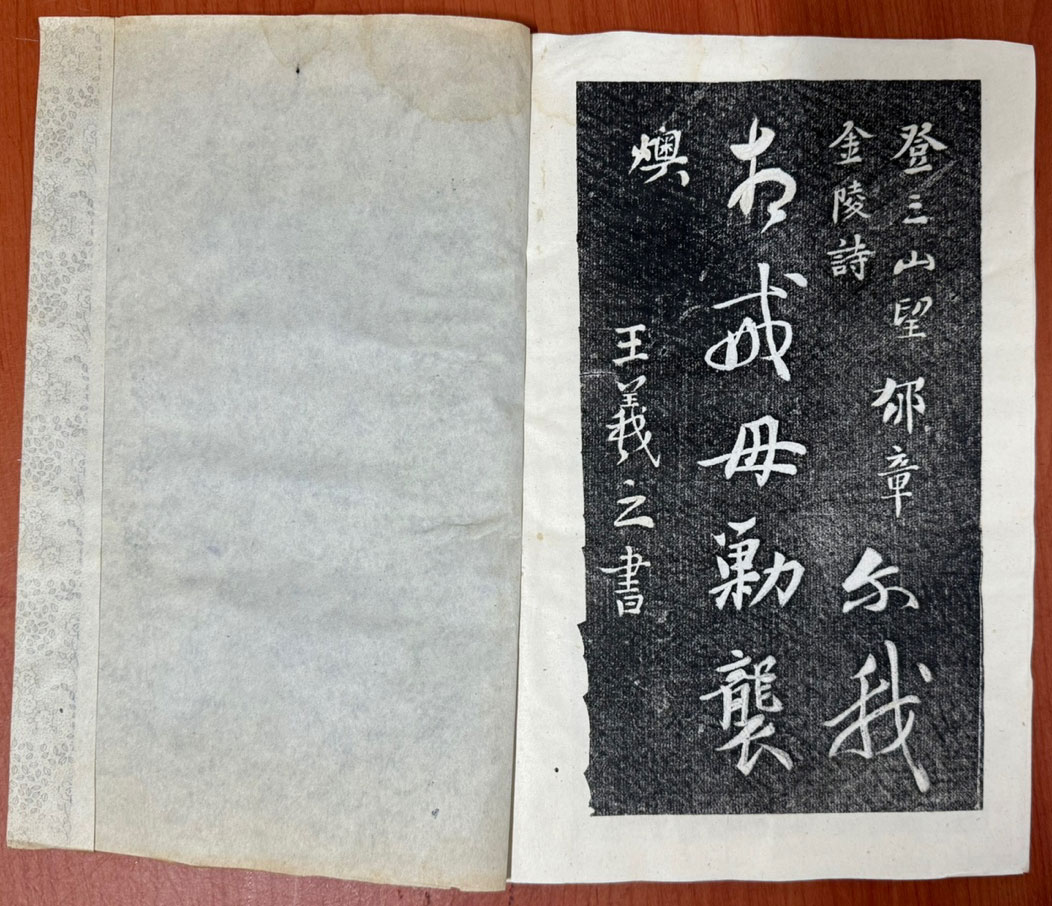 登三山望
金陵詩
章尔我
相戒毋勡襲
燠
王羲之書